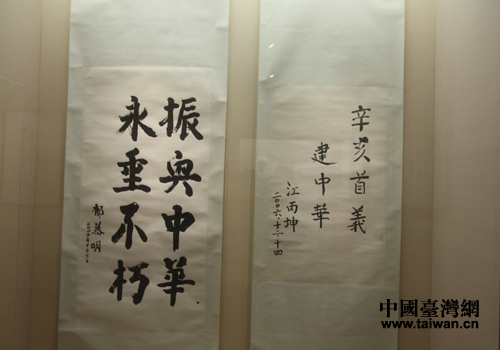 振興中華
永垂不朽
郁慕明
辛亥首義
建中華
江丙坤
二〇〇六.十二.十四
中國臺灣網
www.taiwan.cn